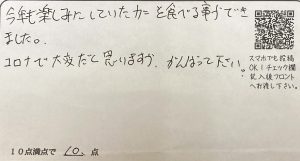 今年も楽しみにしていたカニを食べる事ができ
ました。
コロナで大変だと思いますが、がんばって下さい。
スマホでも投稿
OK！チェック欄
記入後フロント
へお渡し下さい。
10点満点で 10 点